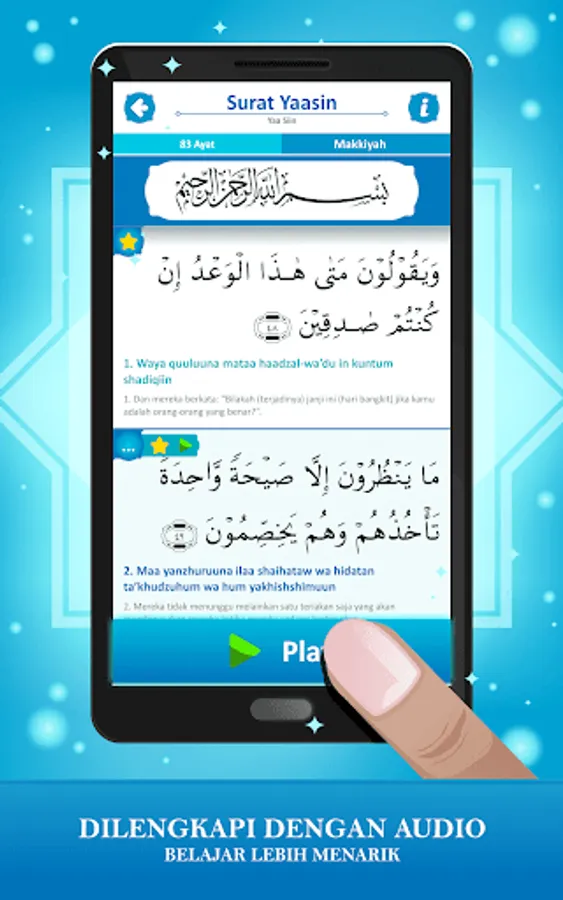 Surat Yaasin
Yaa Siin
83 Ayat
Makkiyah
بِسْمِ اللَّهِ الرَّحْمَٰنِ الرَّحِيمِ
وَيَقُوْلُوْنَ مَتٰى هٰـذَا الْوَعْدُ اِنْ
كُنْتُمْ صٰـدِقِيْنَ ﴿٤٨﴾
1. Waya quuluuna mataa haadzal-wa'du in kuntum
shadiqiin
1. Dan mereka berkata: "Bilakah (terjadinya) janji ini (hari bangkit) jika kamu
adalah orang-orang yang benar?".
...
مَا يَنْظُرُوْنَ اِلَّا صَيْحَةً وَّاحِدَةً
تَأْخُذُهُمْ وَهُمْ يَخِصِّمُوْنَ ﴿٤٩﴾
2. Maa yanzhuruuna ilaa shaihataw wa hidatan
ta'khudzuhum wa hum yakhishshimuun
2. Mereka tidak menunggu melainkan satu teriakan saja yang akan
Pla
DILENGKAPI DENGAN AUDIO
BELAJAR LEBIH MENARIK